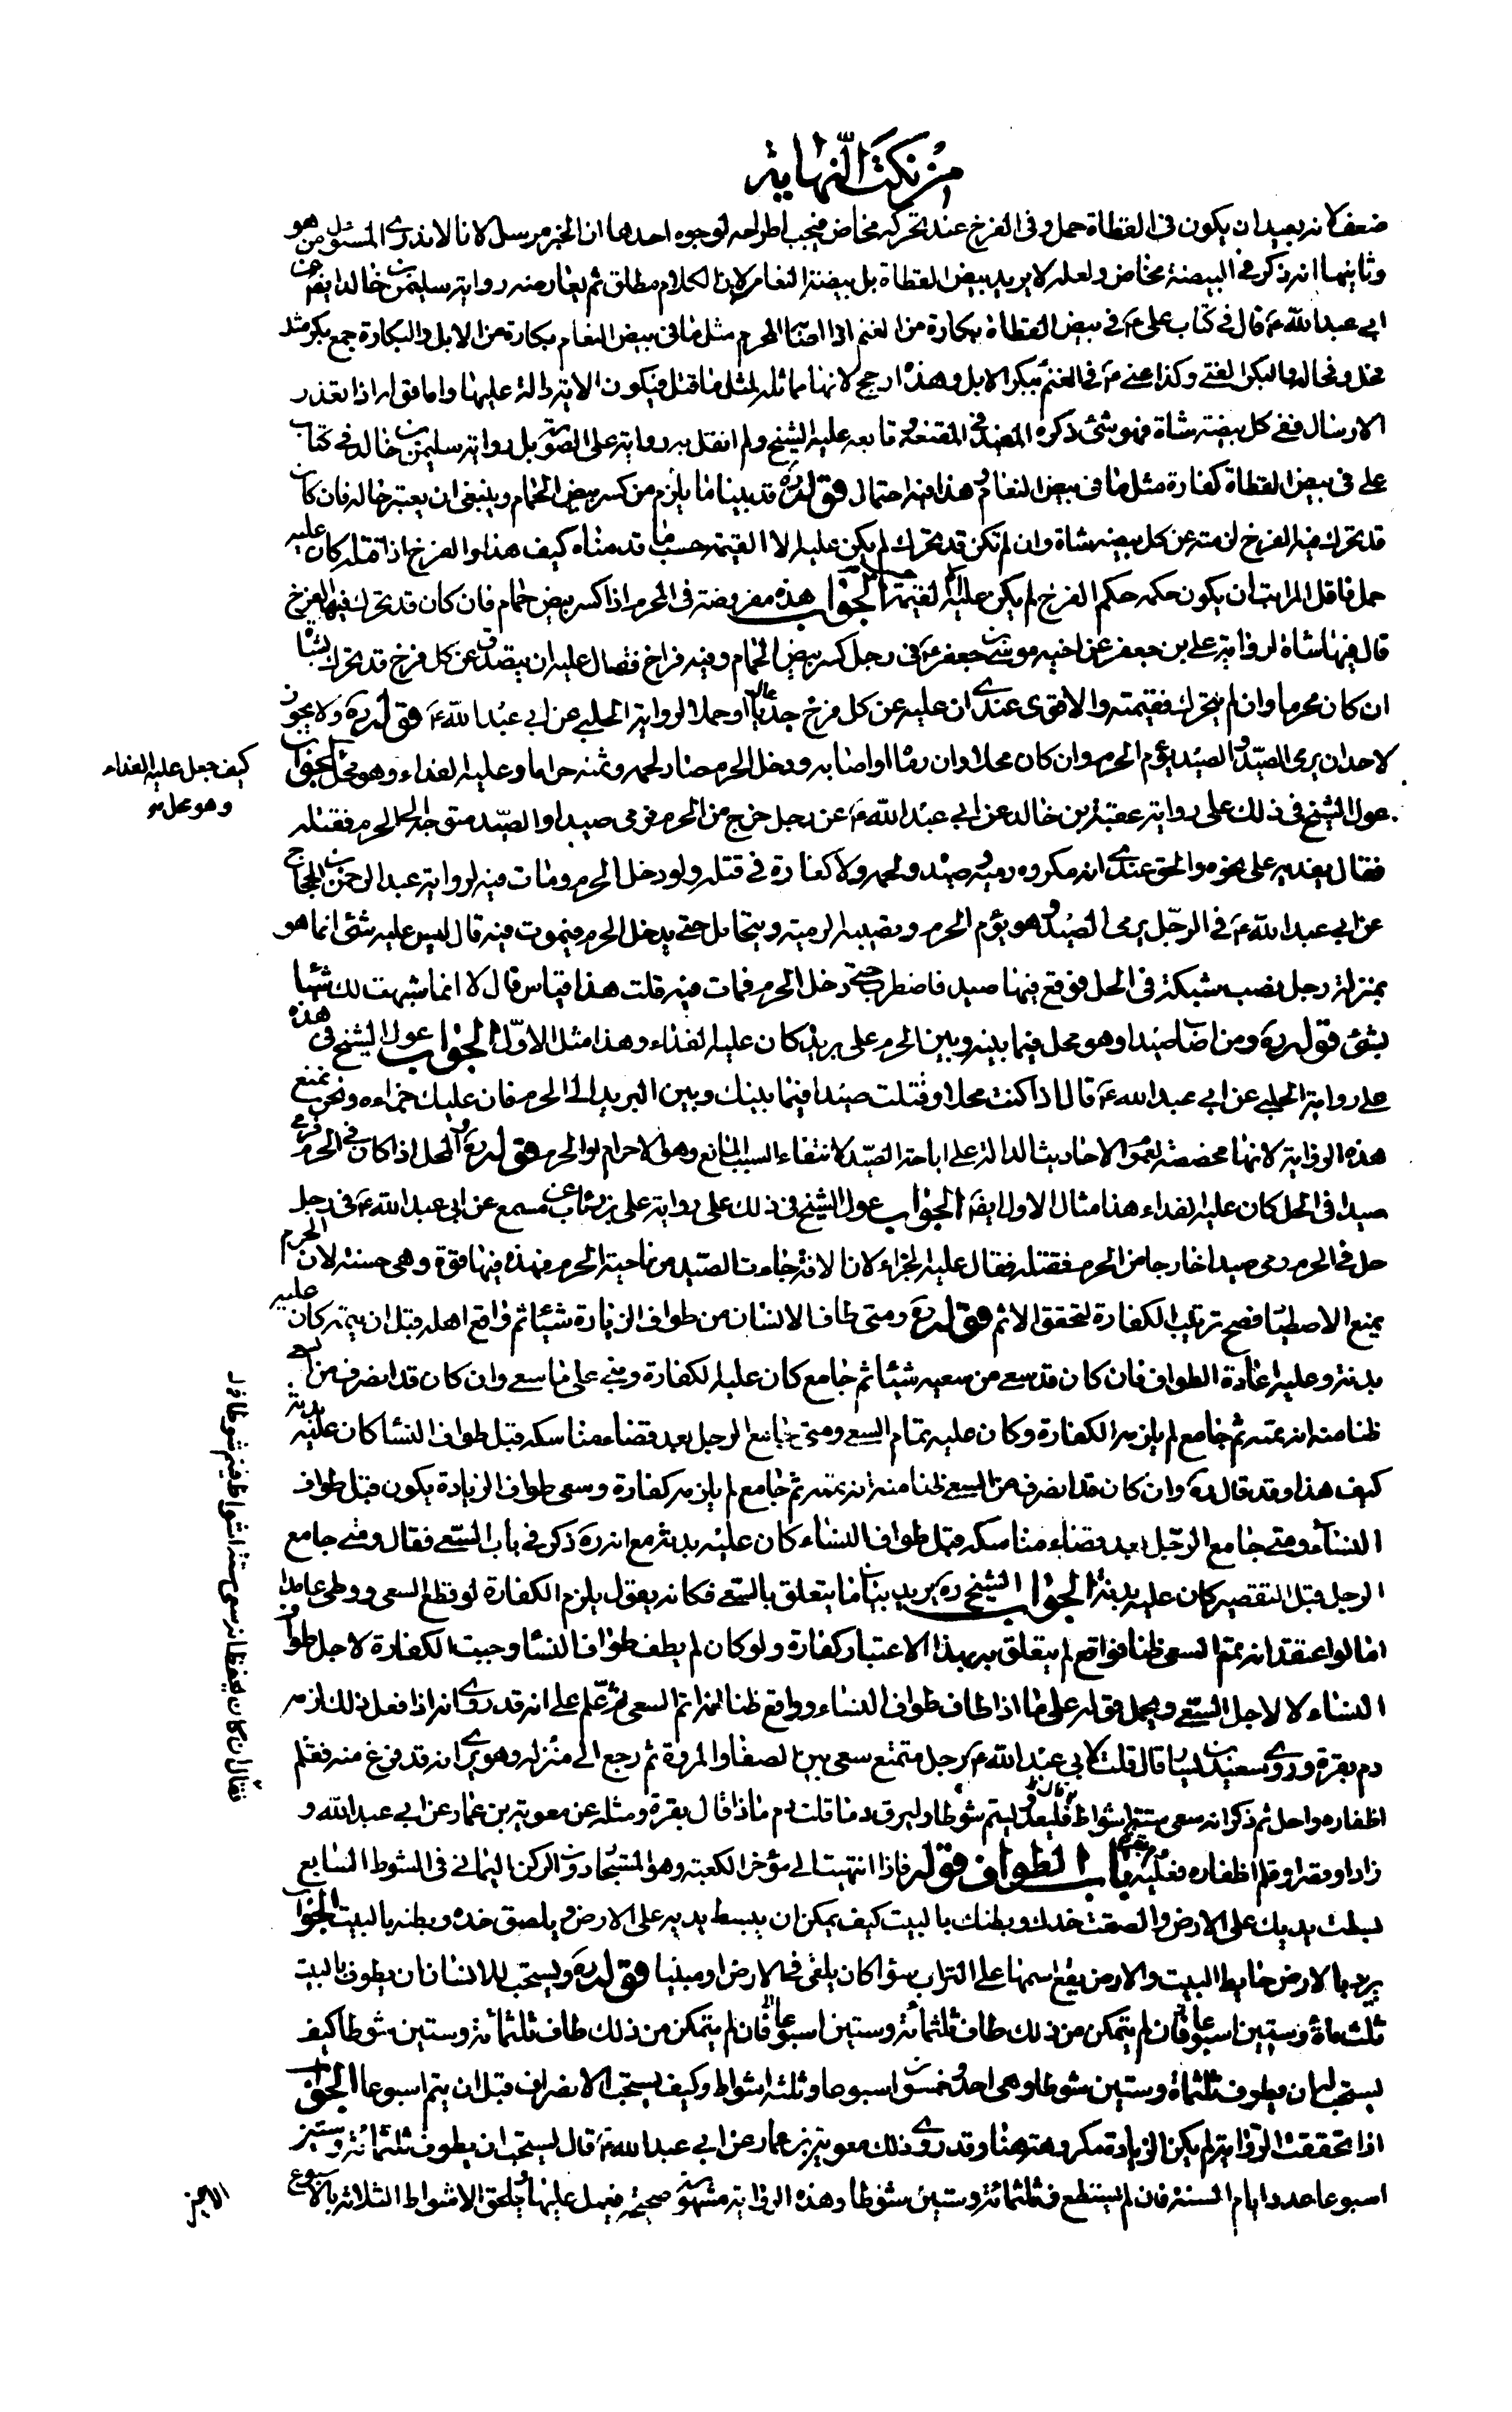 من نكت النهاية
ضعف لانه بعيد ان يكون فى القطاة حمل وفى الفرخ عند تحركه مخاض فيجب اطراحه لوجوه احدها ان الخبر مرسل لانا لا ندرى المسئول من هو
وثانيها انه ذكر فى البيضة مخاض ولعله لا يريد بيض القطاة بل بيضة النعام لان الكلام مطلق ثم يعارضه رواية سليمن بن خالد ايضا عن
ابى عبد الله ع قال فى كتاب على ع فى بيض القطاة بكارة من الغنم اذا اصابه المحرم مثل ما فى بيض النعام بكارة من الابل والبكارة جمع بكر مثل
فحل وفحالة والبكر الفتى وكذا عنى ع فى الغنم ببكر الابل وهذه ارجح لانها مماثلة لمثل ما قتل فيكون الاية دالة عليها واما قوله اذا تعذر
الارسال ففى كل بيضة شاة فهو شئ ذكره المفيد فى المقنعة وتابعه عليه الشيخ ولم انقل به رواية على الصورة بل رواية سليمن بن خالد فى كتاب
على فى بيض القطاة كفارة مثل ما فى بيض النعام وهذا فيه احتمال قوله ره قد بينا ما يلزم من كسر بيض الحمام وينبغى ان يعتبر حاله فان كان
قد تحرك فيه الفرخ لزمته عن كل بيضة شاة وان لم تكن قد تحرك لم يكن عليه الا القيمة حسب ما قدمناه كيف هذا والفرخ اذا قتله كان عليه
حمل فاقل المراتب ان يكون حكمه حكم الفرخ لم يكن عليه الا القيمة الجواب هذه مفروضة فى المحرم اذا كسر بيض حمام فان كان قد تحرك فيها الفرخ
قال فيها شاة لرواية على بن جعفر عن اخيه موسى بن جعفر ع فى رجل كسر بيض الحمام وفيه فراخ فقال عليه ان يتصدق عن كل فرخ قد تحرك بشاة
ان كان محرما وان لم يتحرك فقيمته والاقوى عندى ان عليه عن كل فرخ جديا او حملا لرواية الحلبى عن ابى عبد الله ع قوله ره ولا يجوز
لاحد ان يرمى الصيد والصيد يؤم الحرم وان كان محلا وان رماه او اصابه ودخل الحرم صار لحمه وثمنه حراما وعليه الفداء وهو محل الجواب
كيف جعل عليه الفداء
وهو محل
عول الشيخ فى ذلك على رواية عقبة بن خالد عن ابى عبد الله ع عن رجل خرج من الحرم فرمى صيدا والصيد متوجه الى الحرم فقتله
فقال يفديه على نحوه والحق عندى انه مكروه رميه وصيده ولحمه ولا كفارة فى قتله ولو دخل الحرم ومات فيه لرواية عبد الرحمن بن الحجاج
عن ابى عبد الله ع فى الرجل يرمى الصيد وهو يؤم الحرم ويصيبه الرمية ويتحامل حتى يدخل الحرم فيموت فيه قال ليس عليه شئ انما هو
بمنزلة رجل نصب شبكة فى الحل فوقع فيها صيد فاضطرب حتى دخل الحرم فمات فيه قلت هذا قياس قال لا انما شبهت لك شيئا
بشئ قوله ره ومن اصاب صيدا وهو محل فيما بينه وبين الحرم على بريد كان عليه الفداء وهذا مثل الاول الجواب عول الشيخ فى هذه
على رواية الحلبى عن ابى عبد الله ع قال اذا كنت محلا وقتلت صيدا فيما بينك وبين البريد الى الحرم فان عليك جزاءه ونحن نمنع
هذه الرواية لانها مخصصة لعموم الاحاديث الدالة على اباحة الصيد لانتفاء السبب المانع وهو الاحرام او الحرم قوله ره والمحل اذا كان فى الحرم فرمى
صيدا فى الحل كان عليه الفداء هذا مثال الاول ايضا الجواب عول الشيخ فى ذلك على رواية على بن رئاب عن مسمع عن ابى عبد الله ع فى رجل
حل فى الحرم رمى صيدا خارجا من الحرم فقتله فقال عليه الجزاء لان الافة جاءت الصيد من ناحية الحرم فهذه فيها قوة وهى حسنة لان الحرم
يمنع الاصطياد فصح ترتيب الكفارة لتحقق الاثم قوله ره ومتى طاف الانسان من طواف الزيارة شيئا ثم واقع اهله قبل ان يتمه كان عليه
بدنة وعليه اعادة الطواف فان كان قد سعى من سعيه شيئا ثم جامع كان عليه الكفارة ويبنى على ما سعى وان كان قد انصرف من السعى
ظنا منه انه تممه ثم جامع لم يلزمه الكفارة وكان عليه تمام السعى ومتى جامع الرجل بعد قضاء مناسكه قبل طواف النساء كان عليه بدنة
كيف هذا وقد قال ره وان كان قد انصرف من السعى ظنا منه انه تممه ثم جامع لم يلزمه كفارة وسعى طواف الزيارة يكون قبل طواف
النساء ومتى جامع الرجل بعد قضاء مناسكه قبل طواف النساء كان عليه بدنة مع انه ره ذكر فى باب السعى فقال ومتى جامع
الرجل قبل التقصير كان عليه بدنة الجواب الشيخ ره يريد بيان ما يتعلق بالسعى فكانه يقول يلزم الكفارة لو قطع السعى ووطى عامدا
اما لو اعتقد انه تمم السعى ظنا فواقع لم يتعلق به بهذا الاعتبار كفارة ولو كان لم يطف طواف النساء وجبت الكفارة لاجل طواف
النساء لا لاجل السعى ويحمل قوله على ما اذا طاف طواف النساء وواقع ظنا انه اتم السعى ثم علم على انه قد روى انه اذا فعل ذلك لزمه
دم بقرة وروى سعيد بن يسار قال قلت لابى عبد الله ع رجل متمتع سعى بين الصفا والمروة ثم رجع الى منزله وهو يرى انه قد فرغ منه فقلم
اظفاره واحل ثم ذكر انه سعى ستة اشواط فليعد ليتم شوطا وليرق دما قلت دم ماذا قال بقرة ومثله عن معوية بن عمار عن ابى عبد الله و
فقال ان كان يحفظ انه سعى ستة اشواط فليتم شوطا
زاد او قصر او قلم اظفاره فعليه باب الطواف قوله فاذا انتهيت الى مؤخر الكعبة وهو المستجار دون الركن اليمانى فى الشوط السابع
بسطت يديك على الارض والصقت خدك وبطنك بالبيت كيف يمكن ان يبسط يديه على الارض ويلصق خده وبطنه بالبيت الجواب
يريد بالارض حايط البيت والارض يقع اسمها على التراب سواء كان يلقى فى الارض او مبنيا قوله ره ويستحب للانسان ان يطوف بالبيت
ثلث ماة وستين اسبوعا فان لم يتمكن من ذلك طاف ثلثمائة وستين شوطا كيف
يستحب له ان يطوف ثلثماة وستين شوطا وهى احد وخمسون اسبوعا وثلثة اشواط وكيف يستحب الانصراف قبل ان يتم اسبوعا الجواب
اذا تحققت الرواية لم يكن الزيادة مكروهة هنا وقد روى ذلك معوية بن عمار عن ابى عبد الله ع قال يستحب ان يطوف ثلثمائة وستين
اسبوعا عدد ايام السنة فان لم يستطع فثلثمائة وستين شوطا وهذه الرواية مشهورة صحيحة فيعمل عليها ويلحق الاشواط الثلاثة بالاسبوع
الاخير